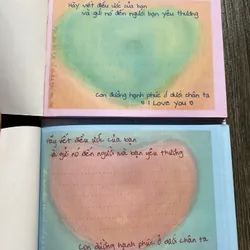 Hãy viết điều ước của bạn
và gửi nó đến người bạn yêu thương
Con đường hạnh phúc ở dưới chân ta
I Love you
Hãy viết điều ước của bạn
và gửi nó đến người mà bạn yêu thương
Con đường hạnh phúc ở dưới chân ta